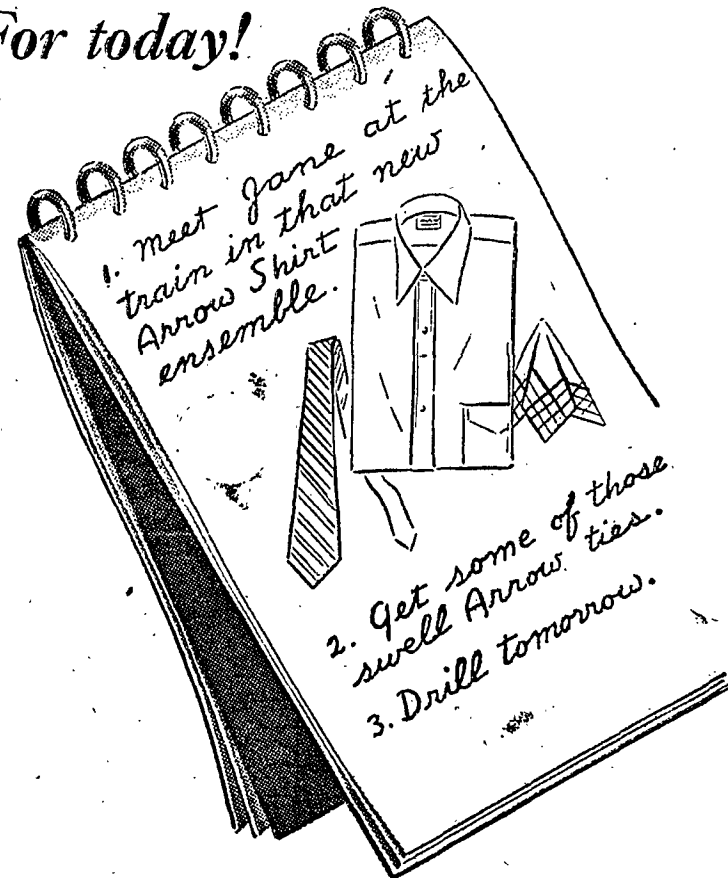 For today!
1. Meet Jane at the
train in that new
Arrow Shirt
ensemble.
2. Get some of those
swell Arrow ties.
3. Drill tomorrow.